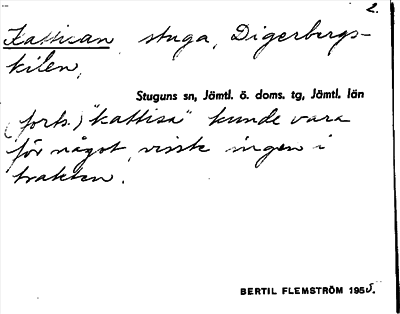 2.
Kattisan, stuga, Digerbergs-
kilen,
Stuguns sn, Jämtl. ö. doms. tg, Jämtl. län
(forts.) "kattisa" kunde vara
för något, visste ingen i
trakten.
BERTIL FLEMSTRÖM 1955.